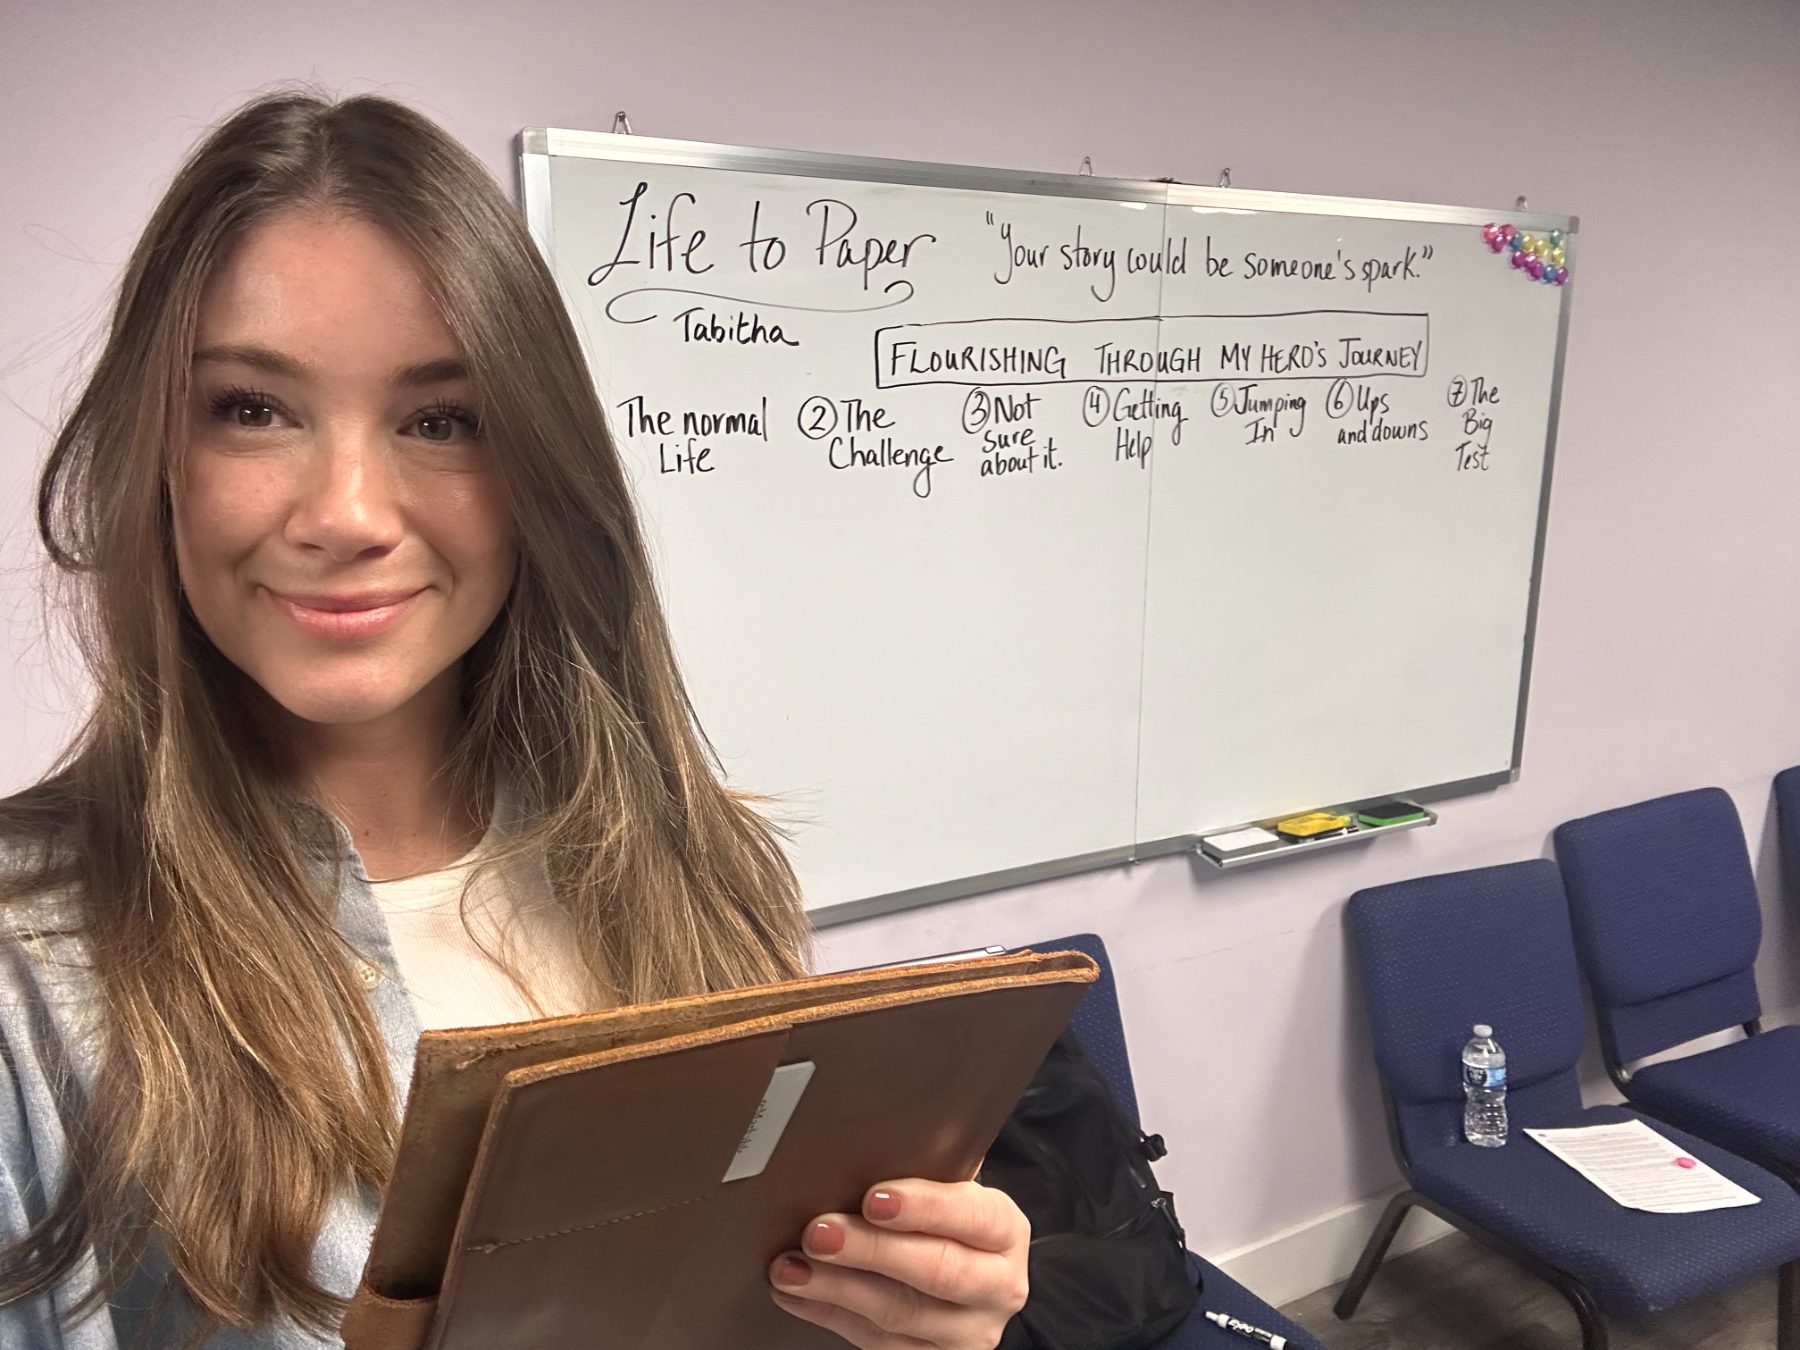 Life to Paper
"Your story could be someone's spark."
Tabitha
FLOURISHING THROUGH MY HERO'S JOURNEY
The normal
Life
② The
Challenge
③ Not
sure
about it.
④ Getting
Help
⑤ Jumping
In
⑥ Ups
and downs
⑦ The
Big
Test